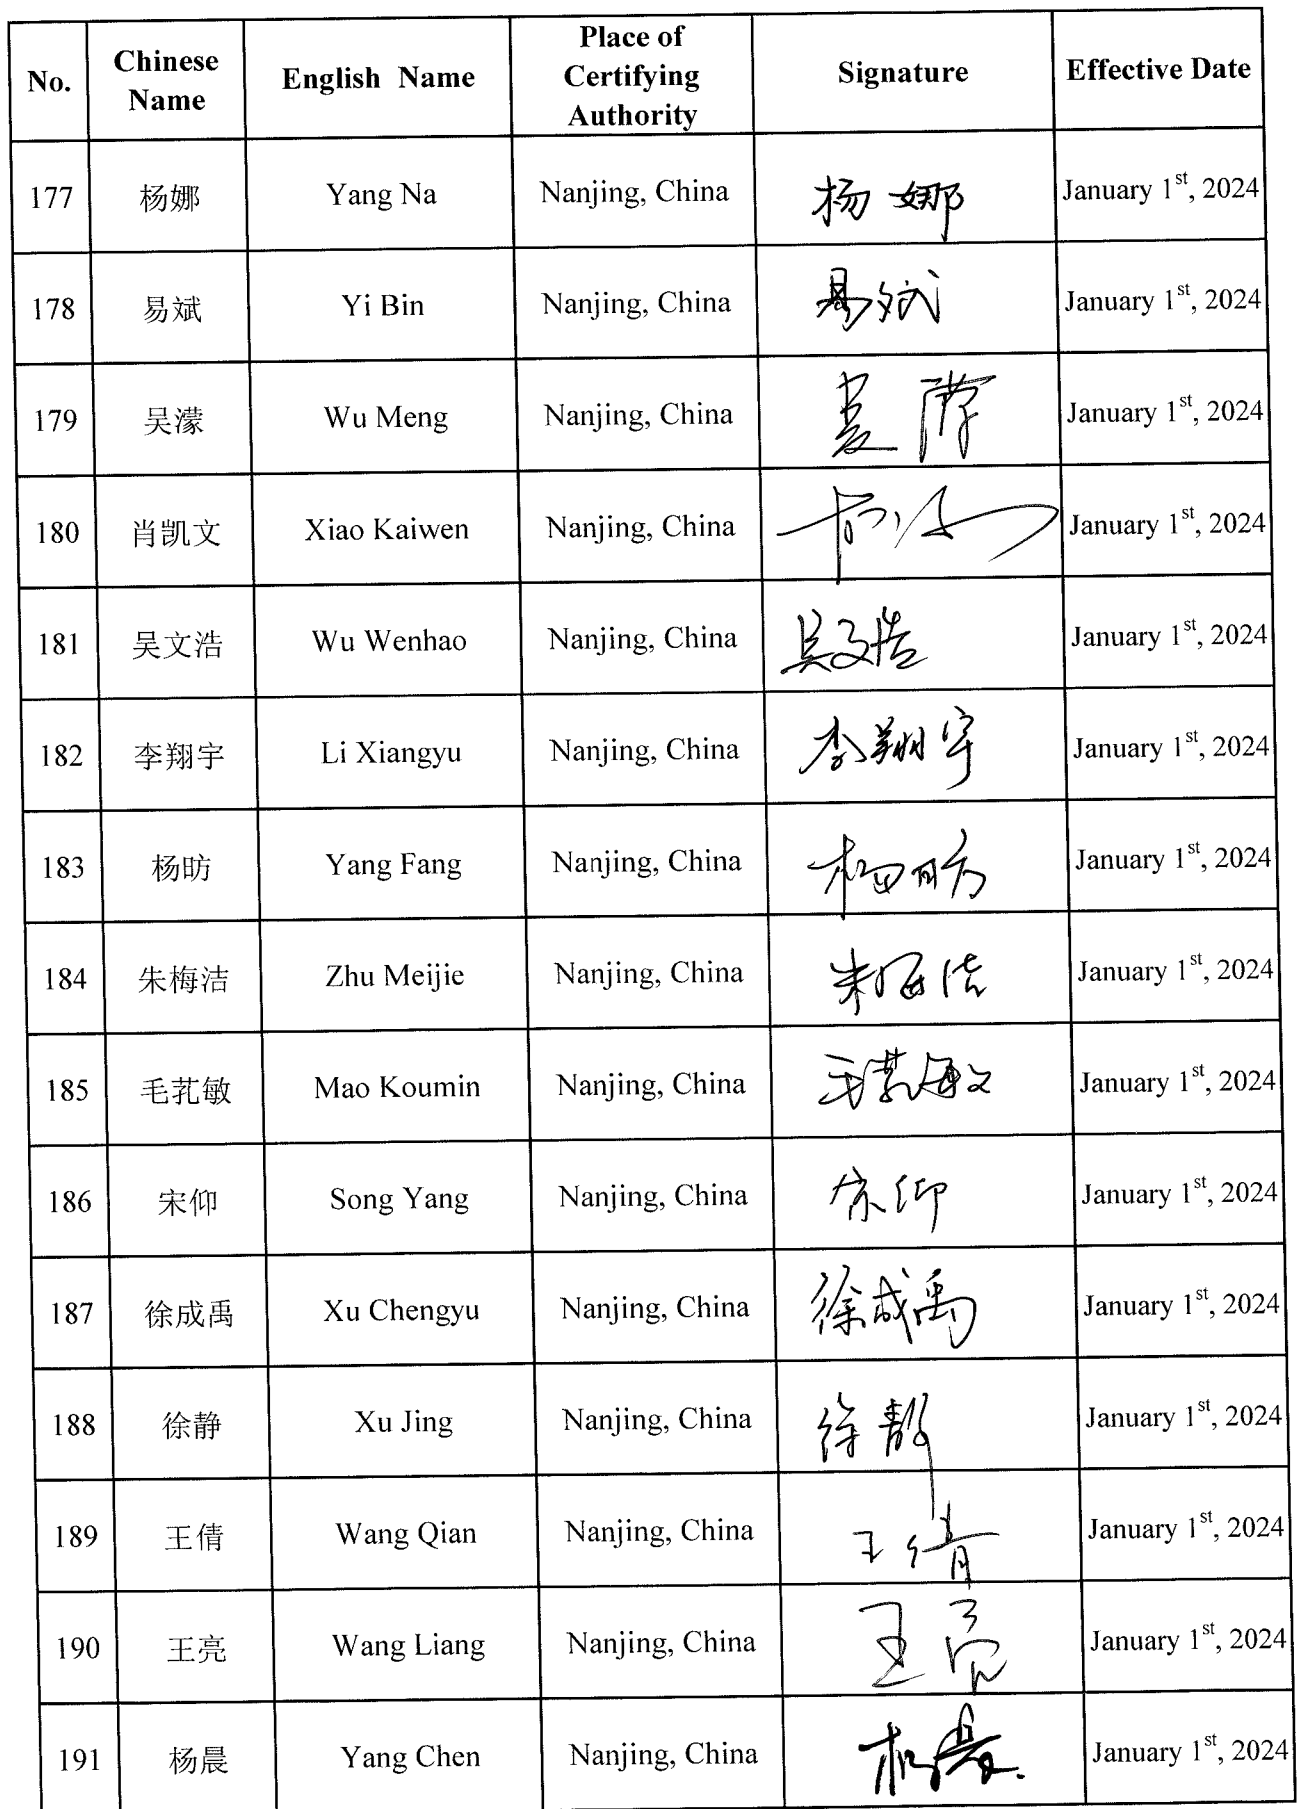 No. Chinese Name English Name Place of Certifying Authority Signature Effective Date
177 杨娜 Yang Na Nanjing, China 杨娜 January 1st, 2024
178 易斌 Yi Bin Nanjing, China 易斌 January 1st, 2024
179 吴濛 Wu Meng Nanjing, China January 1st, 2024
180 肖凯文 Xiao Kaiwen Nanjing, China January 1st, 2024
181 吴文浩 Wu Wenhao Nanjing, China 吴文浩 January 1st, 2024
182 李翔宇 Li Xiangyu Nanjing, China 李翔宇 January 1st, 2024
183 杨昉 Yang Fang Nanjing, China 杨昉 January 1st, 2024
184 朱梅洁 Zhu Meijie Nanjing, China 朱梅洁 January 1st, 2024
185 毛芤敏 Mao Koumin Nanjing, China January 1st, 2024
186 宋仰 Song Yang Nanjing, China 宋仰 January 1st, 2024
187 徐成禹 Xu Chengyu Nanjing, China 徐成禹 January 1st, 2024
188 徐静 Xu Jing Nanjing, China 徐静 January 1st, 2024
189 王倩 Wang Qian Nanjing, China 王倩 January 1st, 2024
190 王亮 Wang Liang Nanjing, China 王亮 January 1st, 2024
191 杨晨 Yang Chen Nanjing, China 杨晨 January 1st, 2024